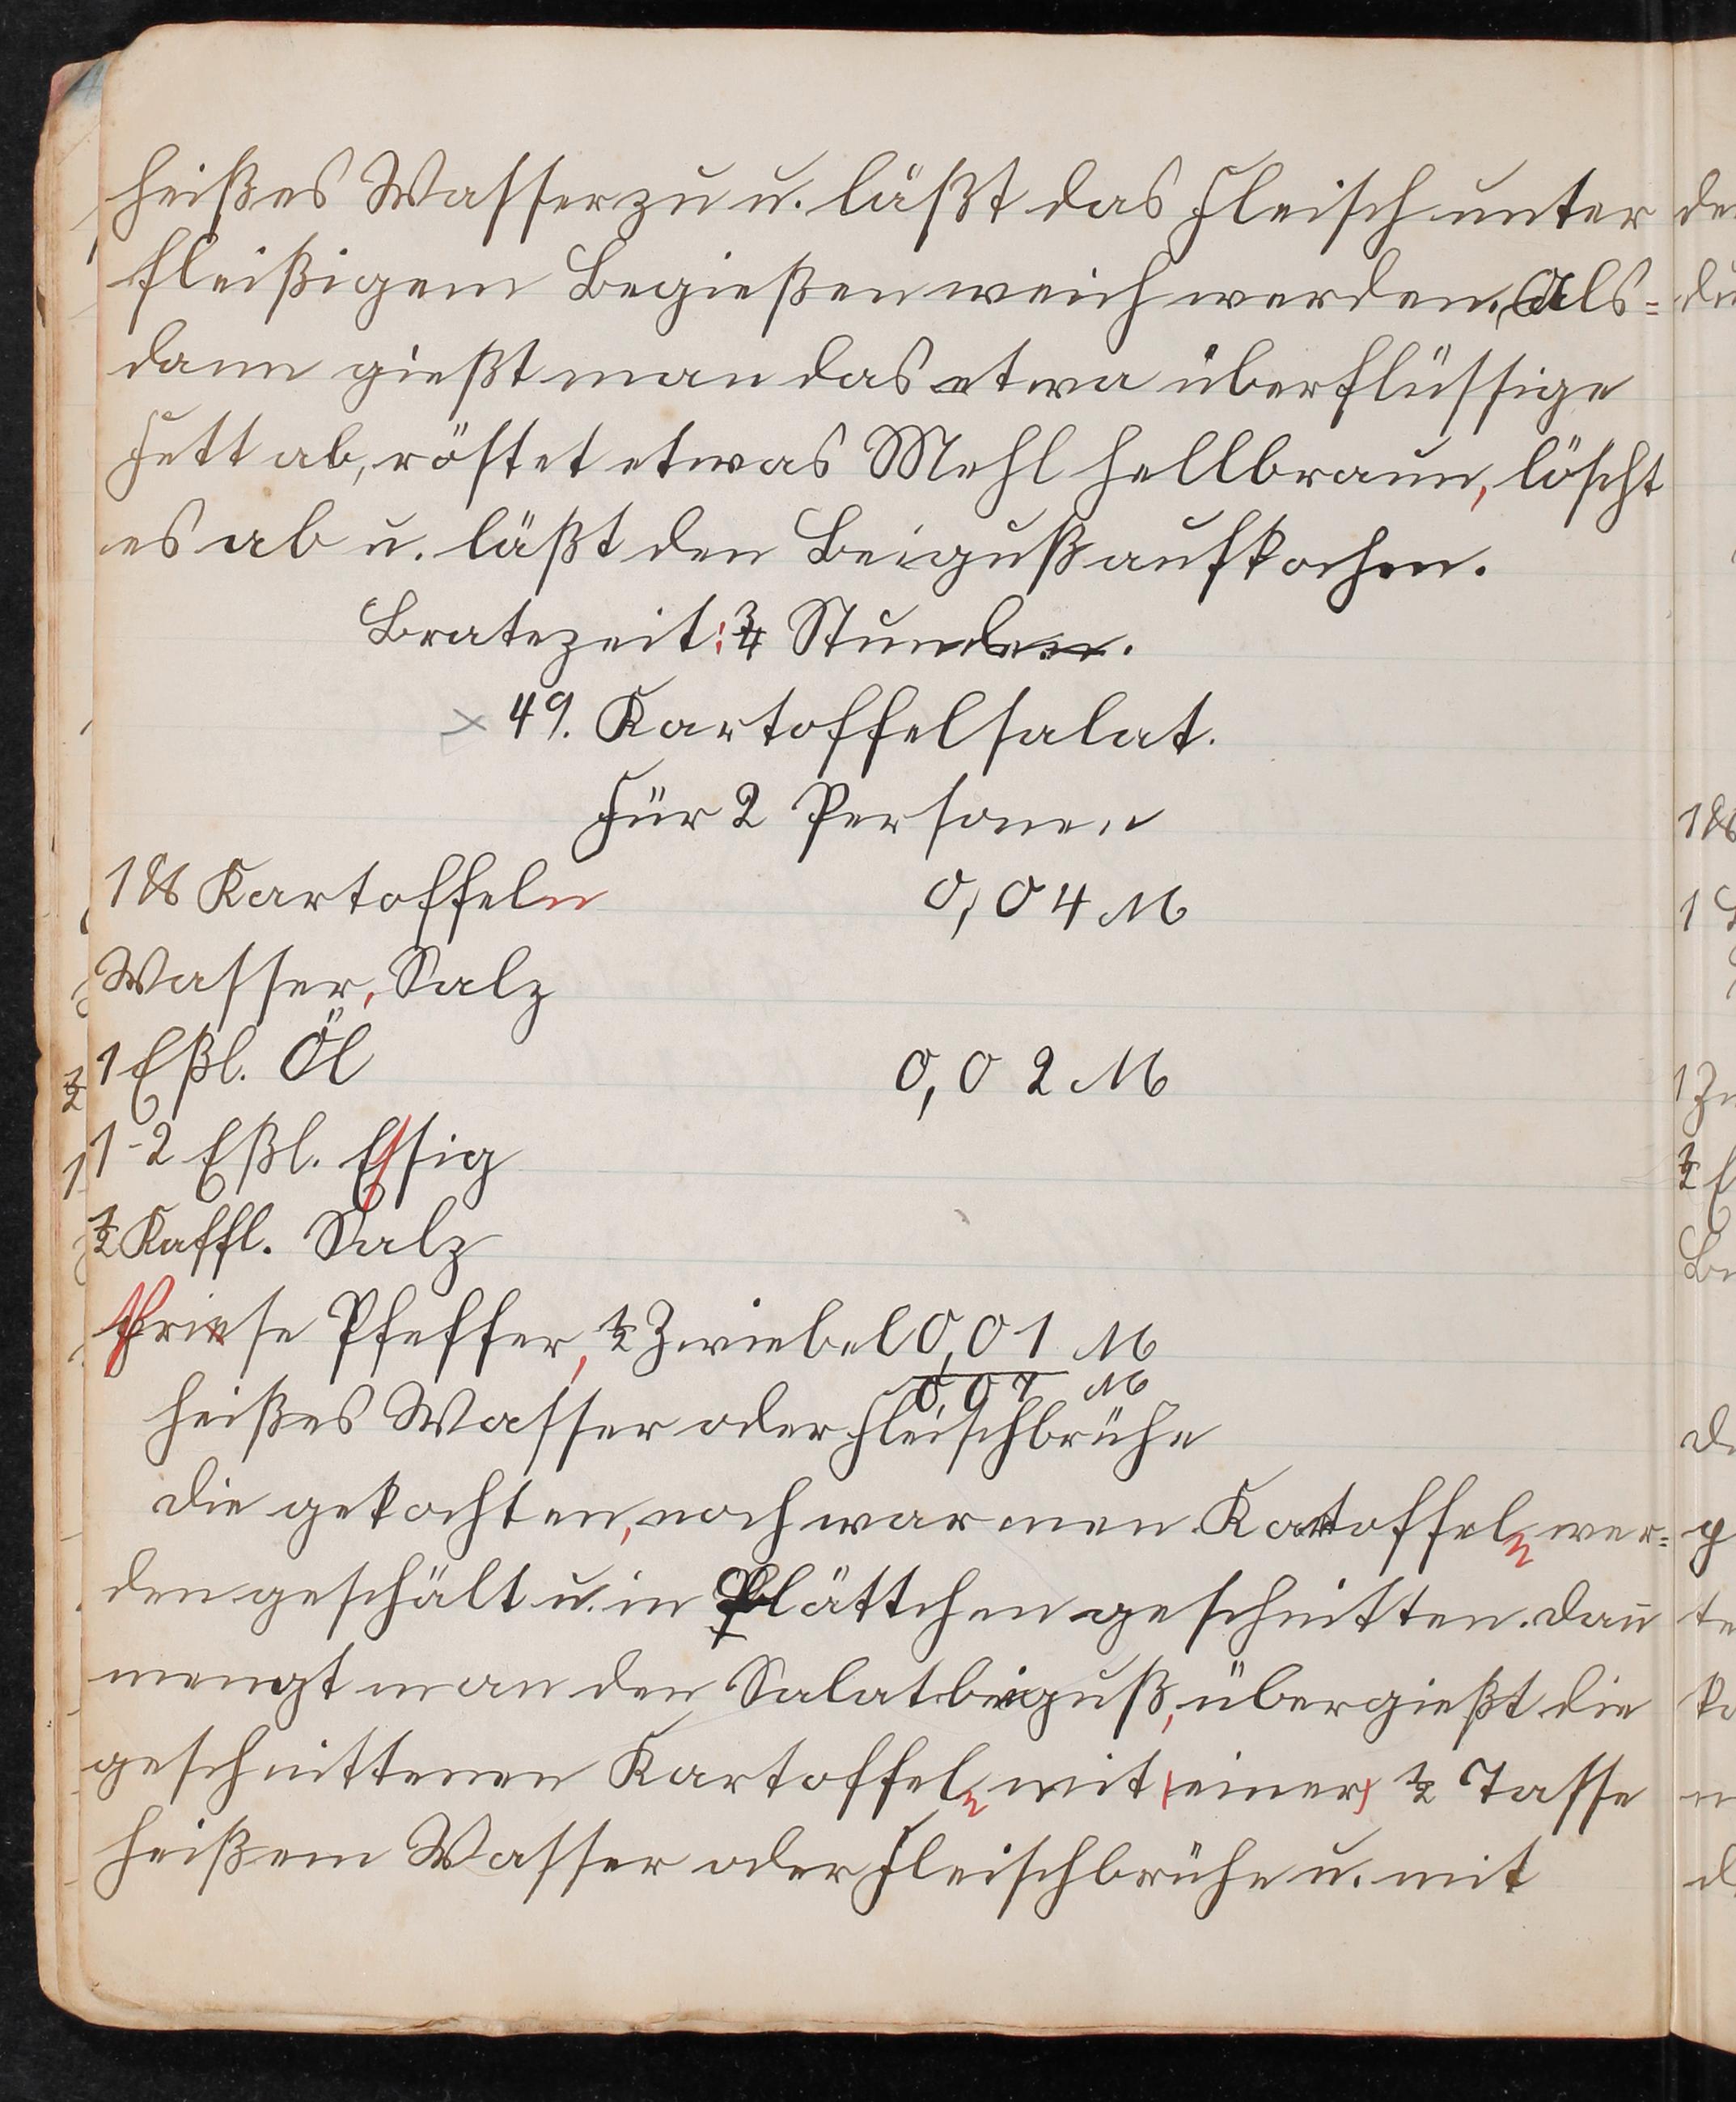 heißes Wasser zu u. läßt das Fleisch unter
fleißigem Begießen weich werden. Als-
dann gießt man das etwa überflüssige
Fett ab, röstet etwas Mehl hellbraun, löscht
es ab u. läßt den Beiguß aufkochen.
Bratezeit: ¾ Stunden.
× 49. Kartoffelsalat.
Für 2 Personen
1 ℔ Kartoffeln 0,04 M
Wasser, Salz
1 Eßl. Öl 0,02 M
1-2 Eßl. Essig
½ Kaffl. Salz
Priese Pfeffer, ½ Zwiebel 0,01 M
0,07 M
heißes Wasser oder Fleischbrühe
Die gekochten, noch warmen Kartoffeln wer-
den geschält u. in Plättchen geschnitten. Dann
mengt man den Salatbeiguß, übergießt die
geschnittenen Kartoffeln mit (einer) ½ Tasse
heißem Wasser oder Fleischbrühe u. mit